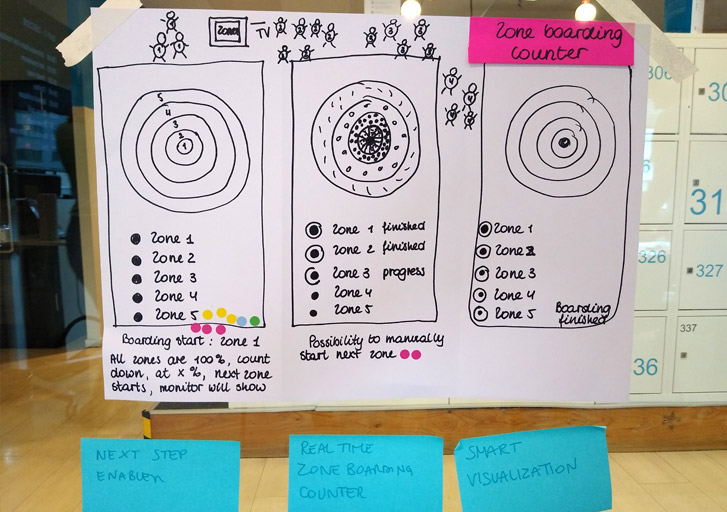 ZONES
TV
Zone boarding
counter
5
4
3
2
1
Zone 1
Zone 2
Zone 3
Zone 4
Zone 5
Boarding start: Zone 1
All zones are 100%, count
down, at x %, next zone
starts, monitor will show
Zone 1 finished
Zone 2 finished
Zone 3 progress
Zone 4
Zone 5
Possibility to manually
start next zone
Zone 1
Zone 2
Zone 3
Zone 4
Zone 5
Boarding
finished
306
30
31
326
327
36
337
NEXT STEP
ENABLER
REAL TIME
ZONE BOARDING
COUNTER
SMART
VISUALIZATION